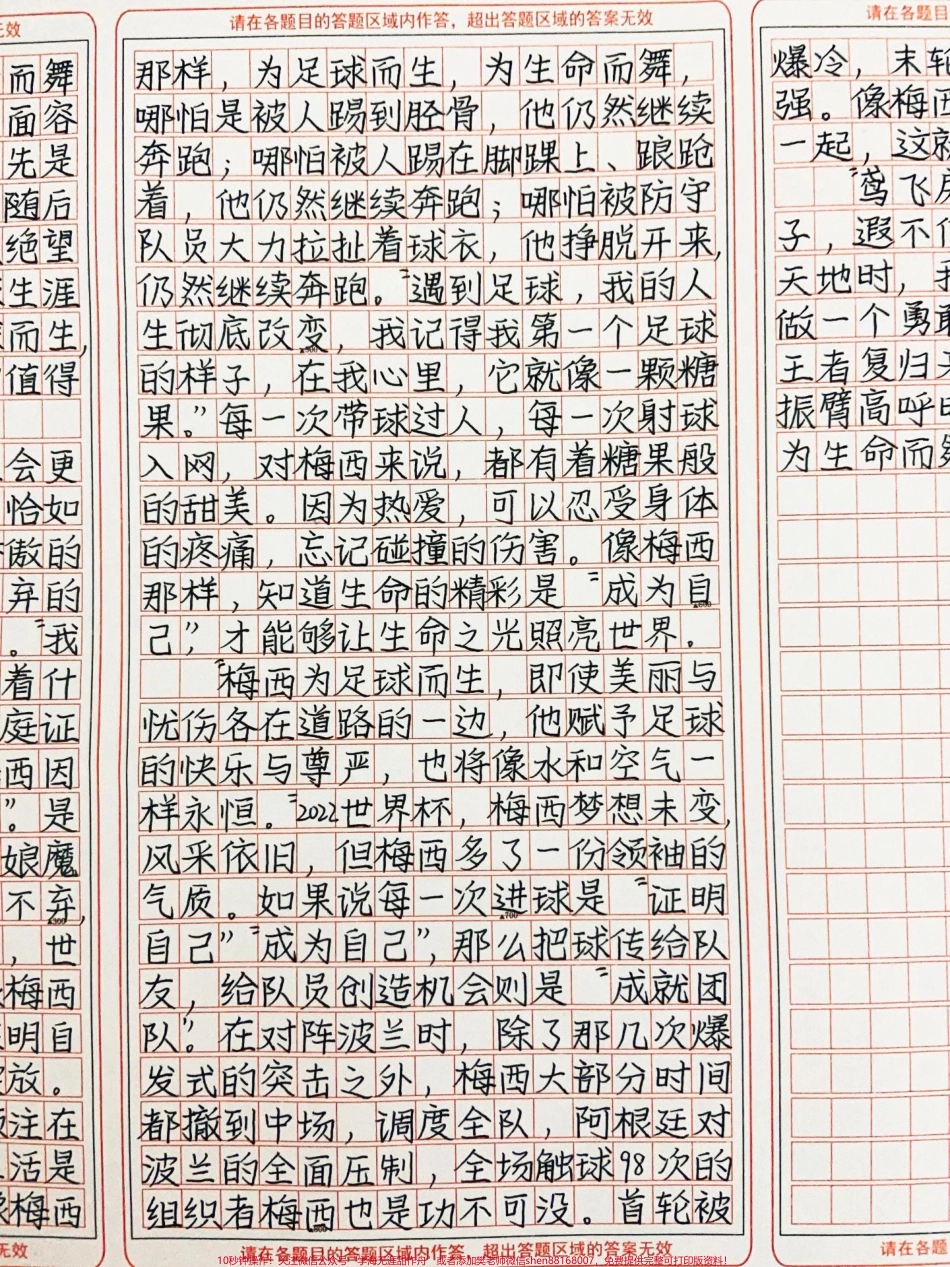 无效
而舞
面容
先是
随后
绝望
生涯
而生,
值得
会更
恰如
傲的
弃的
。“我
着什
庭证
西因
”。是
娘魔
不弃,
，世
梅西
明自
放。
注在
活是
梅西
无效
请在各题目的答题区域内作答，超出答题区域的答案无效
那样，为足球而生，为生命而舞，
哪怕是被人踢到胫骨，他仍然继续
奔跑；哪怕被人踢在脚踝上、踉跄
着，他仍然继续奔跑；哪怕被防守
队员大力拉扯着球衣，他挣脱开来,
仍然继续奔跑。“遇到足球，我的人
生彻底改变，我记得我第一个足球
的样子，在我心里，它就像一颗糖
果。”每一次带球过人，每一次射球
入网，对梅西来说，都有着糖果般
的甜美。因为热爱，可以忍受身体
的疼痛，忘记碰撞的伤害。像梅西
那样，知道生命的精彩是“成为自
己”，才能够让生命之光照亮世界.
“梅西为足球而生，即使美丽与
忧伤各在道路的一边，他赋予足球
的快乐与尊严，也将像水和空气一
样永恒。”2022世界杯，梅西梦想未变,
风采依旧，但梅西多了一份领袖的
气质。如果说每一次进球是“证明
▲700
自己”“成为自己”，那么把球传给队
友，给队员创造机会则是“成就团
队”。在对阵波兰时，除了那几次爆
发式的突击之外，梅西大部分时间
都撤到中场，调度全队，阿根廷对
波兰的全面压制，全场触球98次的
组织者梅西也是功不可没。首轮被
请在各题目的答题区域内作答，超出答题区域的答案无效
请在各题目
爆冷，末轮
强。像梅西
一起，这就
“鸢飞戾
子，遐不作
天地时，我
做一个勇敢
王者复归来
振臂高呼时
为生命而舞
请在各题